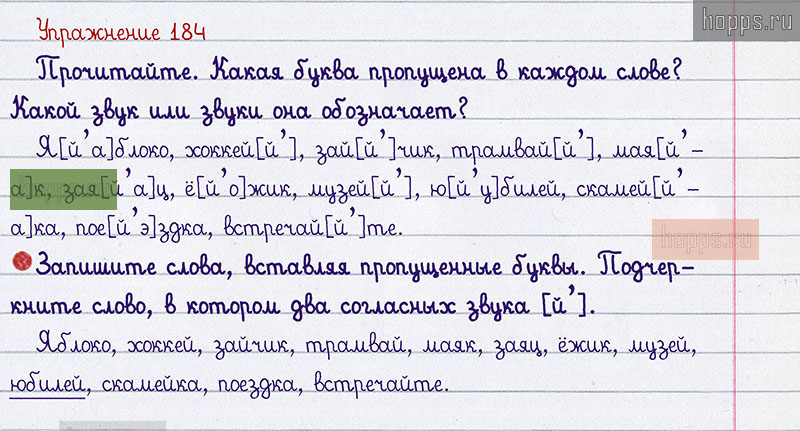 hopps.ru
Упражнение 184
Прочитайте. Какая буква пропущена в каждом слове?
Какой звук или звуки она обозначает?
Я[й’а]блоко, хоккей[й’], зай[й’]чик, трамвай[й’], мая[й’-
а]к, зая[й’а]ц, ё[й’о]жик, музей[й’], ю[й’у]билей, скамей[й’-
а]ка, пое[й’э]здка, встречай[й’]те.
hopps.ru
Запишите слова, вставляя пропущенные буквы. Подчер-
кните слово, в котором два согласных звука [й’].
Яблоко, хоккей, зайчик, трамвай, маяк, заяц, ёжик, музей,
юбилей, скамейка, поездка, встречайте.